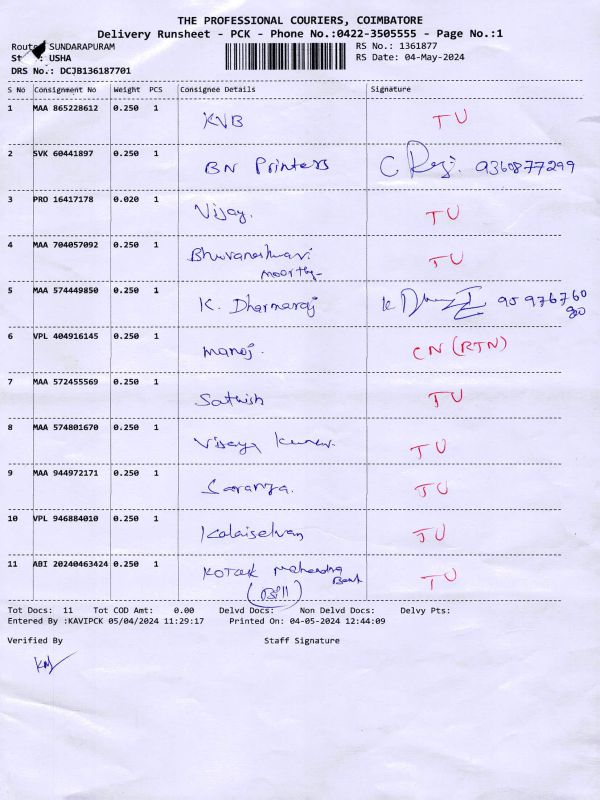 THE PROFESSIONAL COURIERS, COIMBATORE
Delivery Runsheet - PCK - Phone No.:0422-3505555 - Page No.:1
Route: SUNDARAPURAM
RS No.: 1361877
: USHA
RS Date: 04-May-2024
DRS No.: DCJB136187701
S No Consignment No Weight PCS Consignee Details Signature
1 MAA 865228612 0.250 1 KVB TU
2 SVK 60441897 0.250 1 BN Printers 9360877299
3 PRO 16417178 0.020 1 Vijay. TU
4 MAA 704057092 0.250 1 Bhuvaneshwari TU
moorthy
5 MAA 574449850 0.250 1 K. Dharmaraj 95 976760
900
6 VPL 404916145 0.250 1 manoj. CN (RTN)
7 MAA 572455569 0.250 1 Sathish TU
8 MAA 574801670 0.250 1 Vijaya Kumar. TU
9 MAA 944972171 0.250 1 Saranya. TU
10 VPL 946884010 0.250 1 Kalaiselvan TU
11 ABI 20240463424 0.250 1 KOTAK Mahendra TU
Bank
Tot Docs: 11 Tot COD Amt: 0.00 Delvd Docs: Non Delvd Docs: Delvy Pts:
Entered By :KAVIPCK 05/04/2024 11:29:17 Printed On: 04-05-2024 12:44:09
Verified By Staff Signature